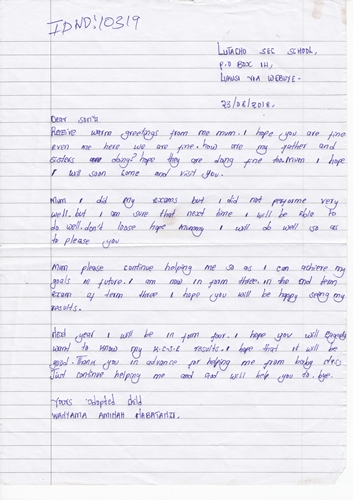 IDNO:10319
LUTACHO SEC SCHOOL,
P.O BOX 114,
LUHUSI VIA WEBUYE.
23/06/2018.
Dear Sonia
Receive warm greetings from me mum. I hope you are fine
even me here we are fine. how are my father and
sisters are doing? hope they are doing fine too. Mum I hope
I will soon come and visit you.
Mum I did my exams but i did not performe very
well. but I am sure that next time I will be able to
do well. don't loose hope mummy I will do well so as
to please you
Mum please continue helping me so as I can achieve my
goals in future. I am now in form three. in the end term
exam of team three I hope you will be happy seeing my
results.
Next year I will be in form four. I hope you will
want to know my K.C.S.E results. I hope that it will be
good. Thank you in advance for helping me from baby class
Just continue helping me and God will help you to. bye.
Yours adopted child
AMINAH NABATANZI.